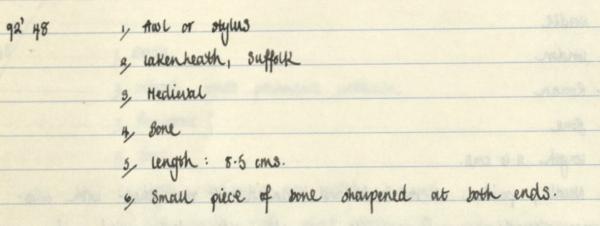 92' 48 1, Awl or stylus
2, Lakenheath, Suffolk
3, Medieval
4, Bone
5, length : 8.5 cms.
6, Small piece of bone sharpened at both ends.